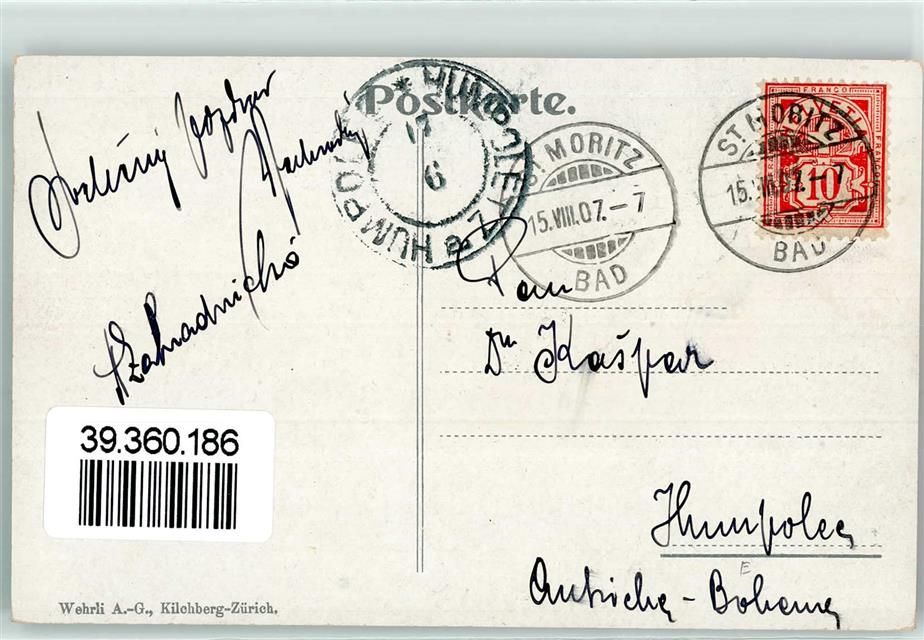 Postkarte.
Srdečný pozdrav
* HUMPOLETZ * HUMPOLEC
17
8
7
6
ST MORITZ
15.VIII.07.–7
BAD
ST MORITZ
15.VIII.07.–7
BAD
FRANCO
HELVETIA
FRANCO
10
Pan
Dr Kašpar
Humpolec
Autriche – Boheme
E
39.360.186
Wehrli A.-G., Kilchberg-Zürich.